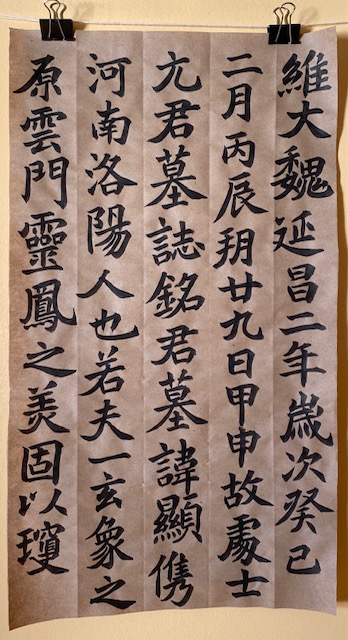 維大魏延昌二年歲次癸巳
二月丙辰朔廿九日甲申故處士
元君墓誌銘君墓諱顯儁
河南洛陽人也若夫一玄象之
原雲門靈鳳之美固以瓊